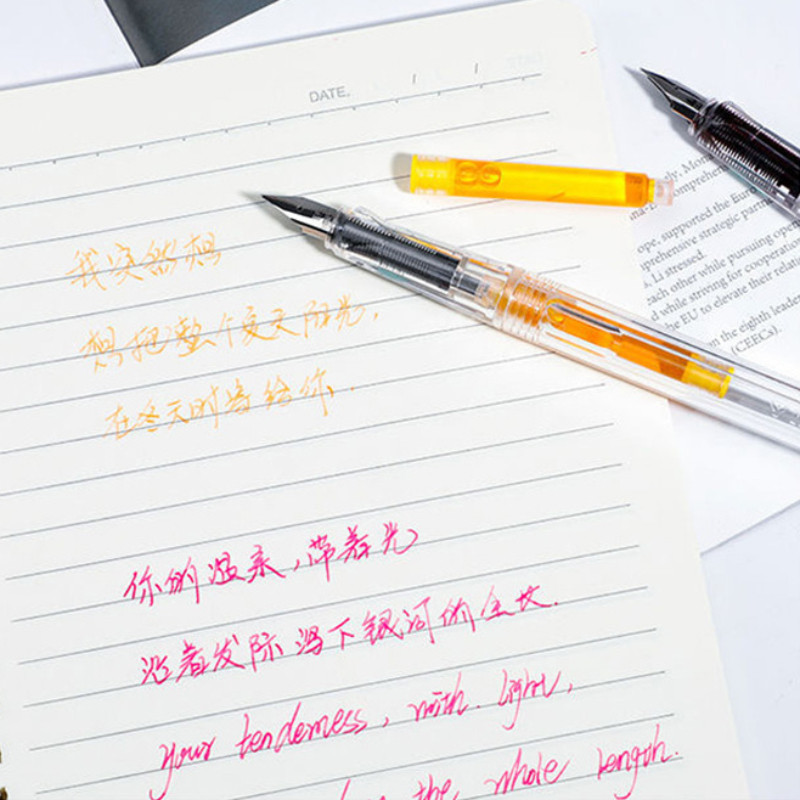 DATE.
我突然想
想把整个夏天阳光,
在冬天时寄给你.
你的温柔,带着光
沿着发际泻下银河的全长.
your tenderness, with light,
the whole length.
ely, Mon
comprehen
ope, supported the Euro
prehensive strategic partn
, Li stressed.
each other while pursuing open
d while striving for cooperation
he EU to elevate their relatio
n the eighth leader
(CEECs).